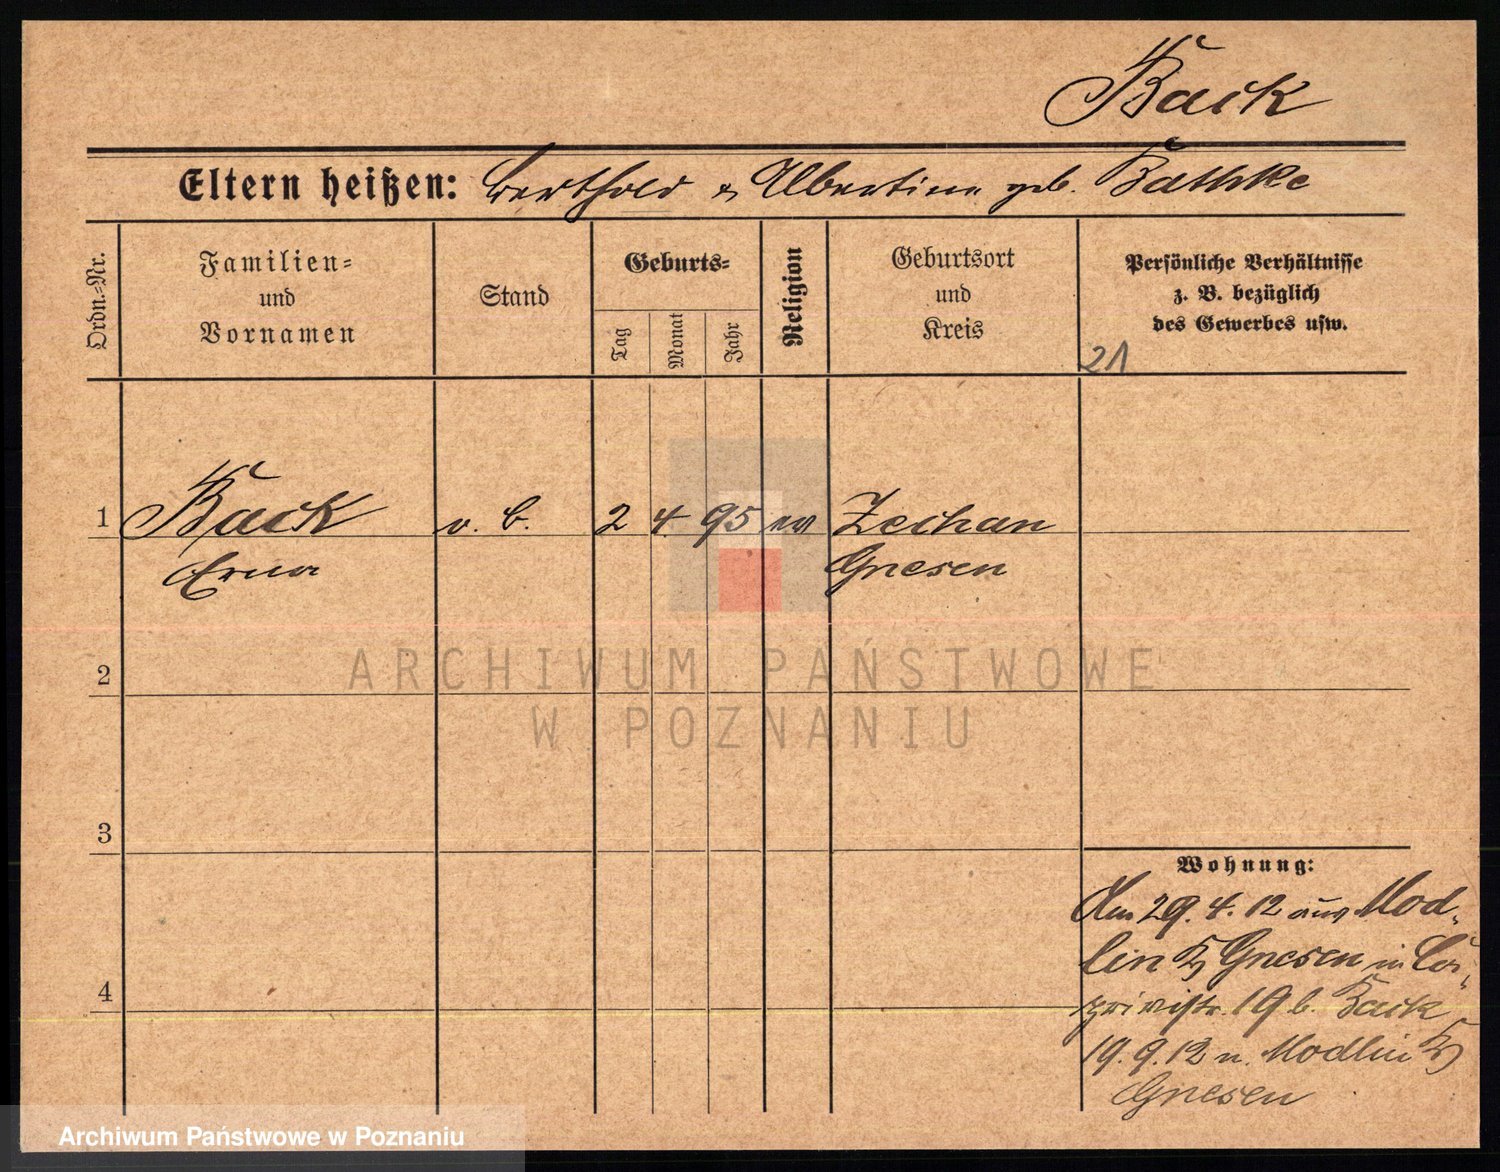 Back
Eltern heißen: Berthold & Albertine geb. Bathke
Ordn.-Nr.
Familien-
und
Vornamen
Stand
Geburts-
Tag
Monat
Jahr
Religion
Geburtsort
und
Kreis
Persönliche Verhältnisse
z. B. bezüglich
des Gewerbes usw.
21
1 Back o. b. 2 4. 95 ev Zechau
Erna Gnesen
2
ARCHIWUM PAŃSTWOWE
W POZNANIU
3
Wohnung:
Am 29. 4. 12 aus Mod-
lin Kr Gnesen in Ca-
privistr. 19 b. Back
4
19. 9. 12 n. Modlin Kr
Gnesen
Archiwum Państwowe w Poznaniu